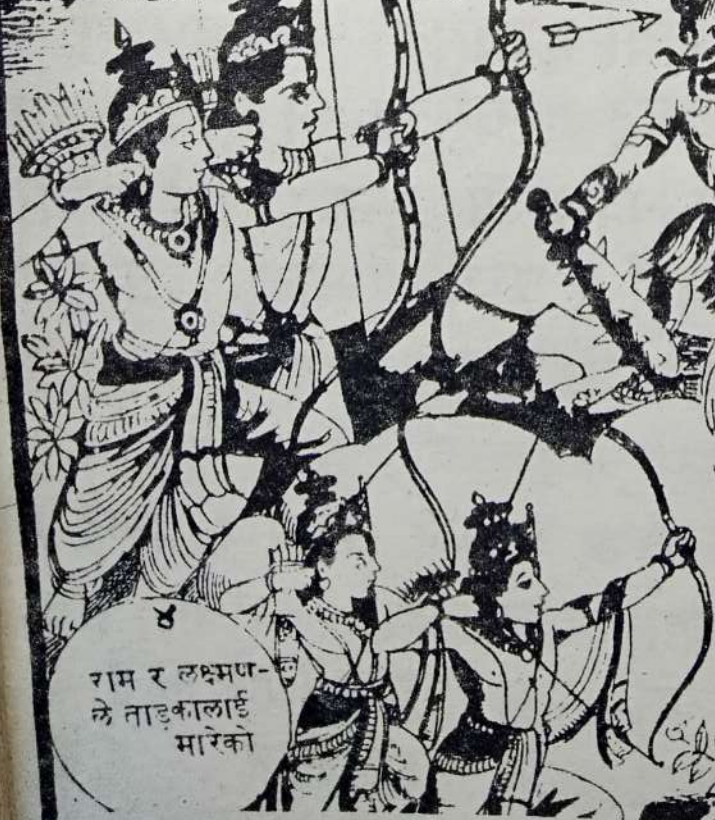 ४
राम र लक्ष्मण-
ले ताड़कालाई
मारेको